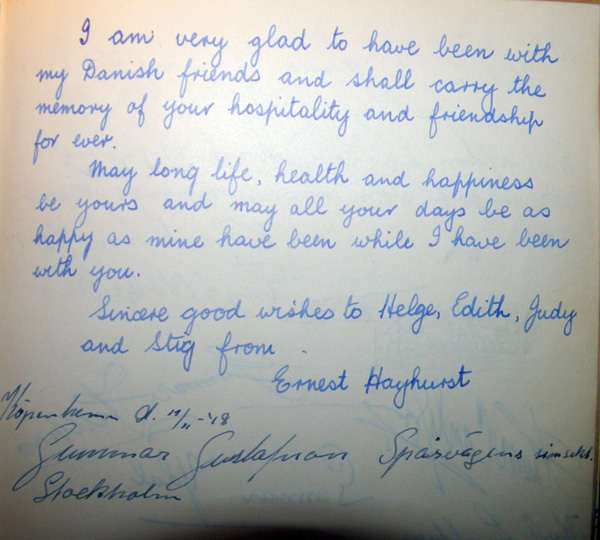 I am very glad to have been with
my Danish friends and shall carry the
memory of your hospitality and friendship
for ever.
May long life, health and happiness
be yours and may all your days be as
happy as mine have been while I have been
with you.
Sincere good wishes to Helge, Edith, Judy
and Stig from.
Ernest Hayhurst
d. /11 -48
Gunnar Gustafsson Spårvägens simsekt.
Stockholm